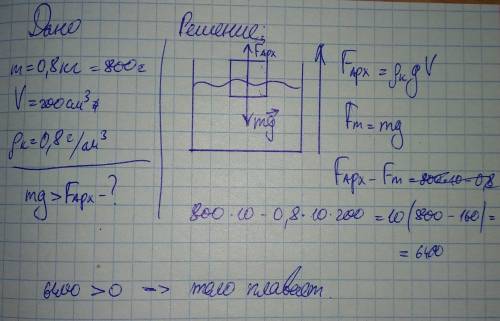 Дано
m = 0,8 кг = 800 г
V = 200 см³
ρк = 0,8 г/см³
mg > FАрх - ?
Решение:
FАрх
mg
FАрх = ρк g V
Fт = mg
FАрх - Fт = 800·10 - 0,8
800·10 - 0,8·10·200 = 10(800 - 160) =
= 6400
6400 > 0 => тело плавает.